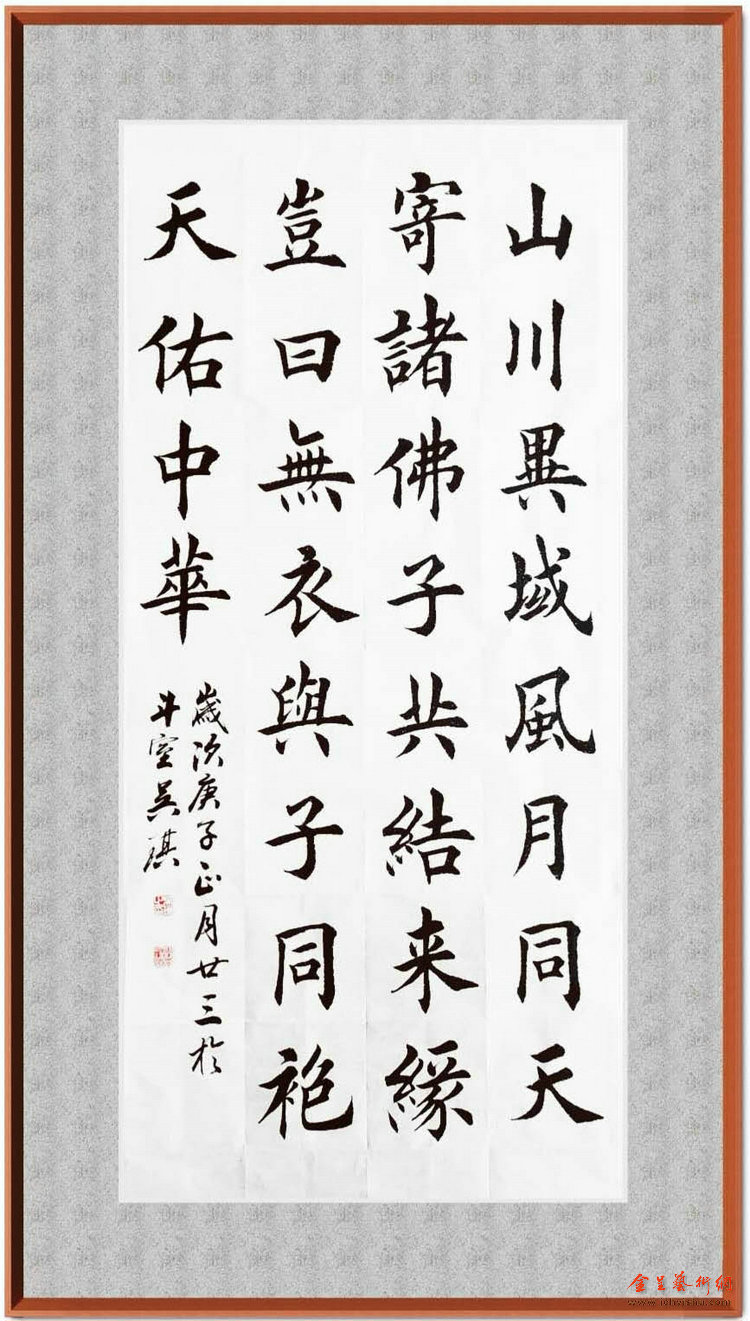 山川異域風月同天
寄諸佛子共結来緣
豈曰無衣與子同袍
天佑中華
歲次庚子正月廿三於
斗室吴琪
金呈藝術網